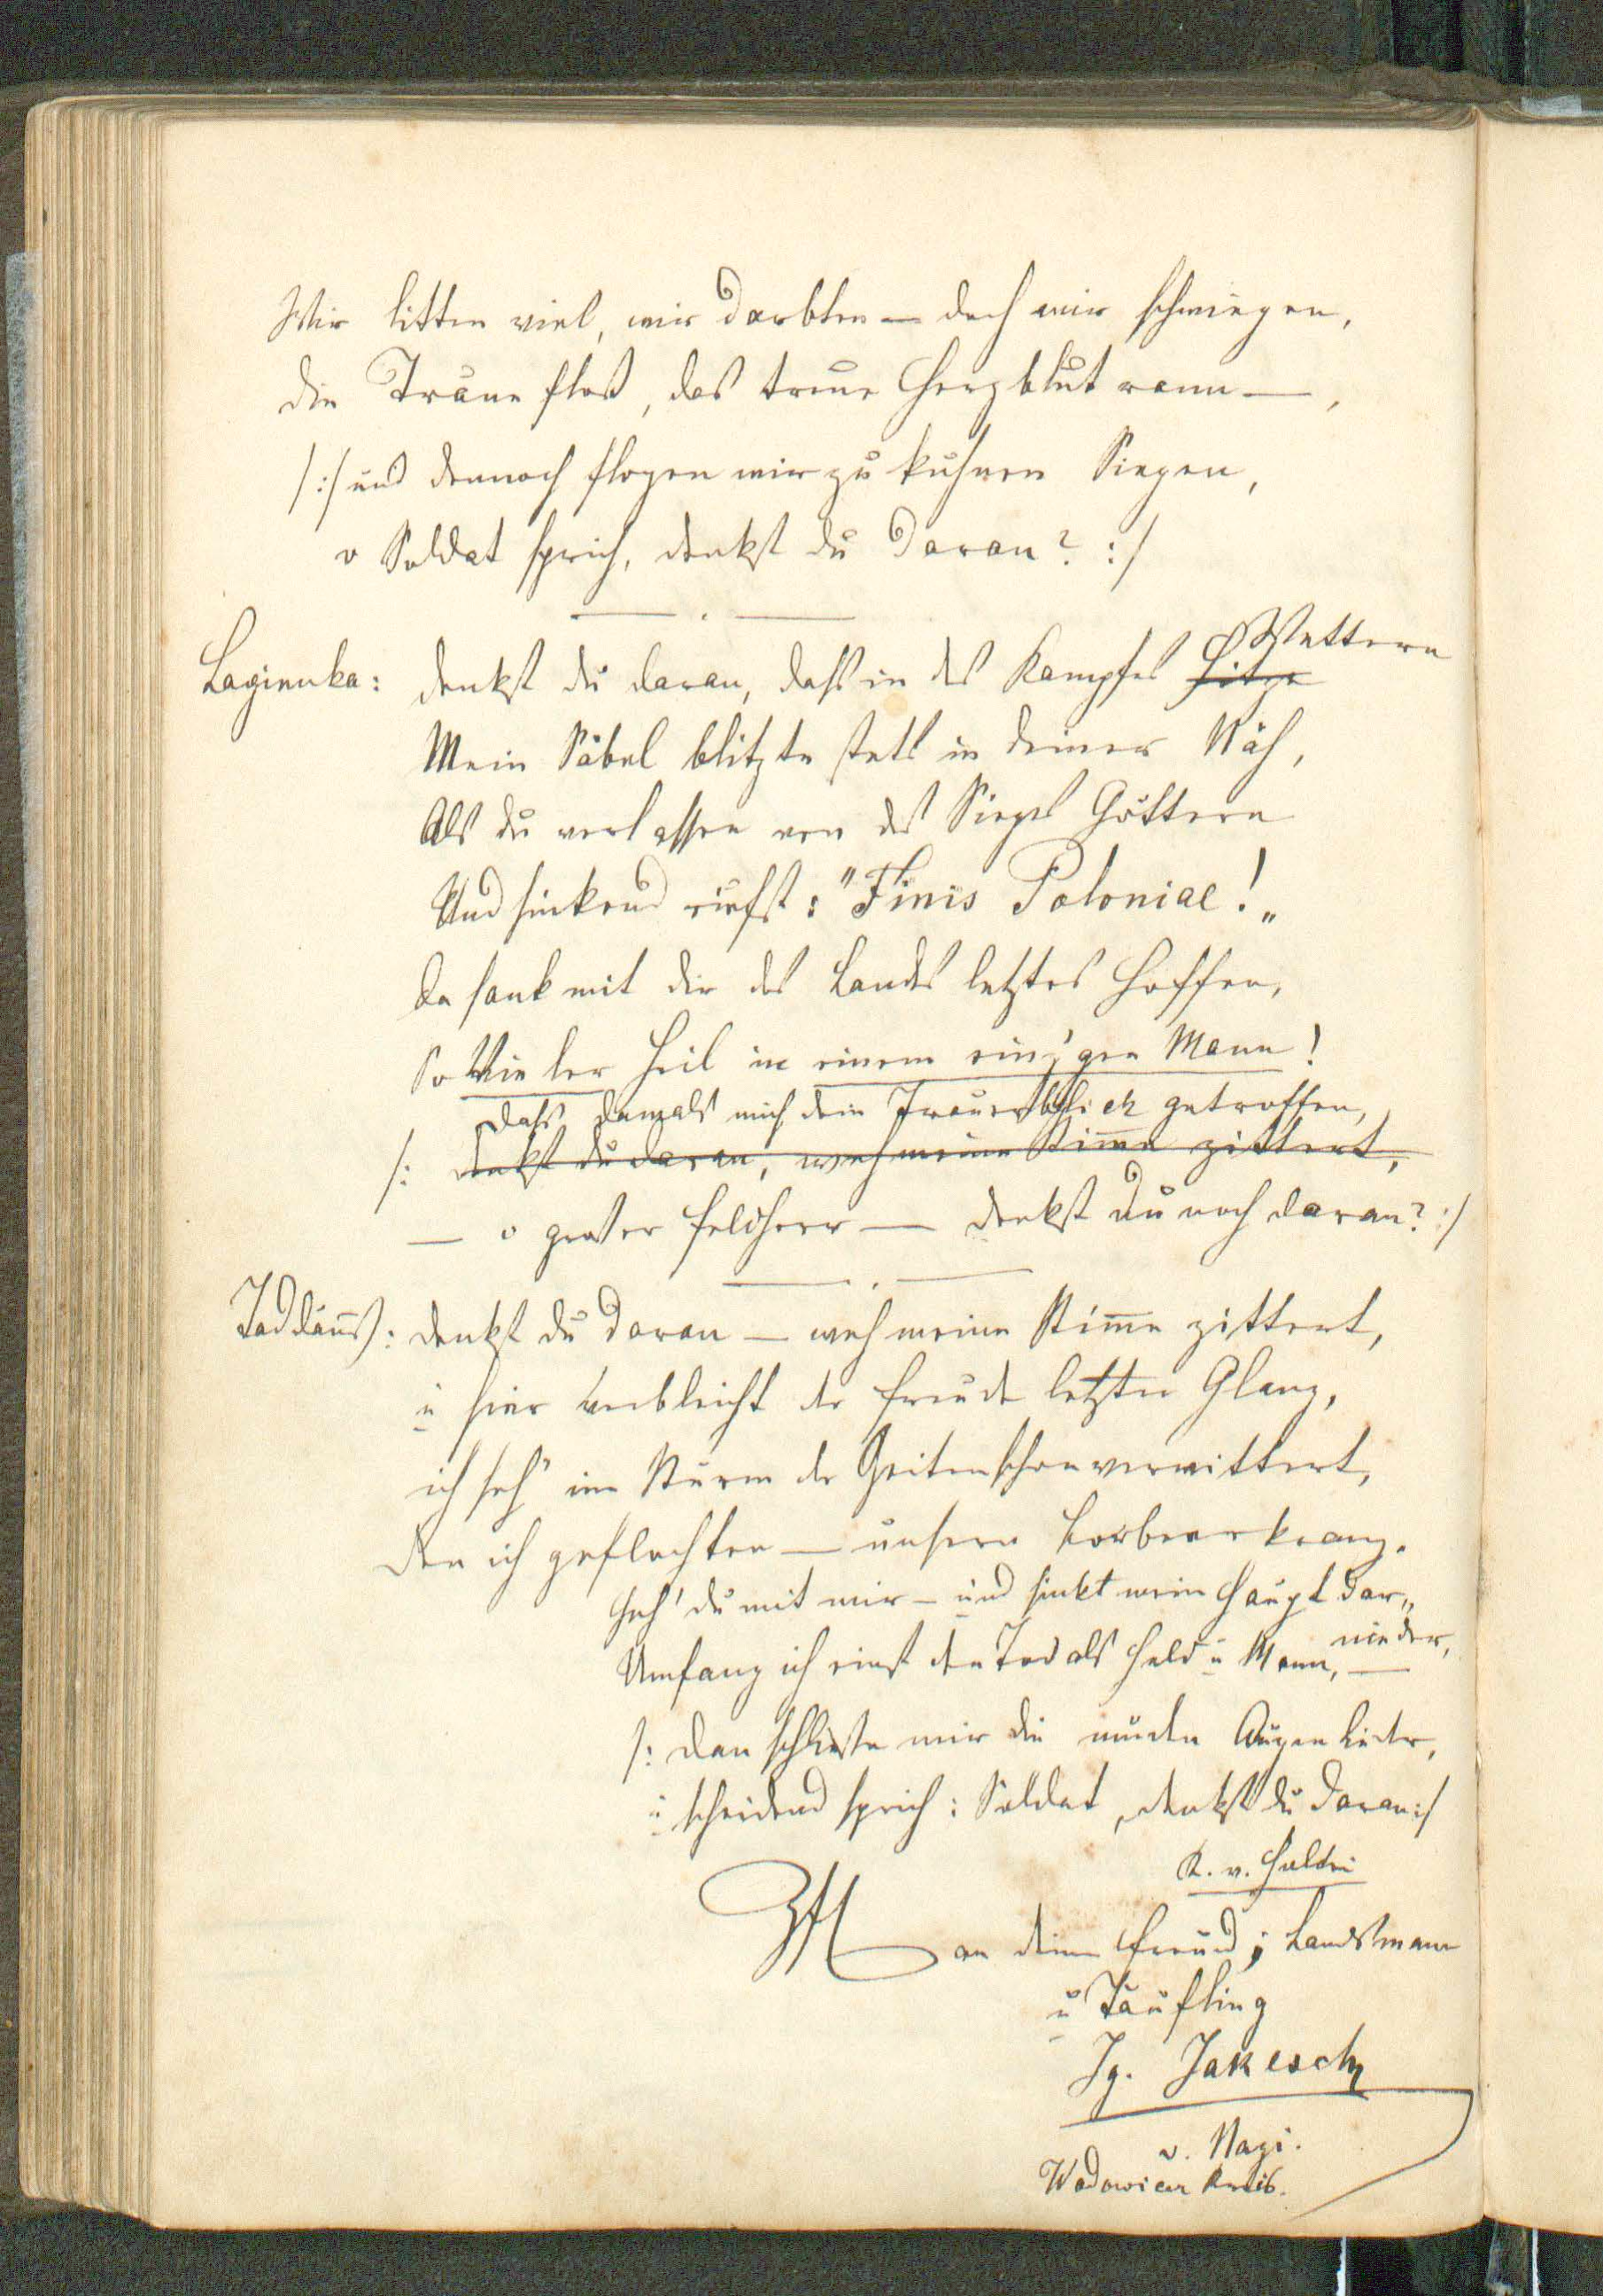 Wir litten viel, wir darbten — doch wir schwiegen,
die Träne floß, das treue Herzblut rann —,
/:/ und dennoch flogen wir zu kuhnen Siegen,
o Soldat sprich, denkst du daran? :/
Lagienka: denkst du daran, daß in des Kampfes Hitze Wettern
Mein Säbel blitzte stets in deiner Näh,
Als du verlassen von des Sieges Göttern
Und sinkend riefst: "Finis Poloniae!"
Da sank mit dir des Landes letztes Hoffen,
So Vieler Heil in einem einz'gen Mann!
Daß damals mich dein Trauerblick getroffen,
/: denkst du daran, weh meine Stim̅e zittert,
— o großer Feldherr — denkst du noch daran? :/
Taddäus: denkst du daran — weh meine Stim̅e zittert,
u hier verbleicht der Freude letzter Glanz,
ich seh' im Sturm der Zeiten schon verwittert,
den ich geflochten — unsern Lorbeerkranz.
Geh' du mit mir — und sinkt mein Haupt dar„
nieder,
Umfang ich einst den Tod als Held u Mann, —
/: dan schließe mir die müden Augenlieder,
u scheidend sprich: Soldat, denkst du daran :/
K. v. Holtei
an deinen Freund, Landsmann
u Täufling
Ig. Jakesch
v. Nazi.
Wadowicer Kreis.